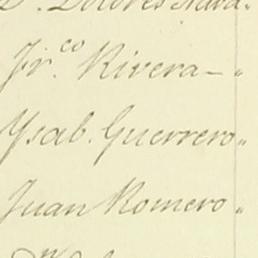 D.ª Dolores
Fr.co Rivera - "
Ysab. Guerrero "
Juan Romero "